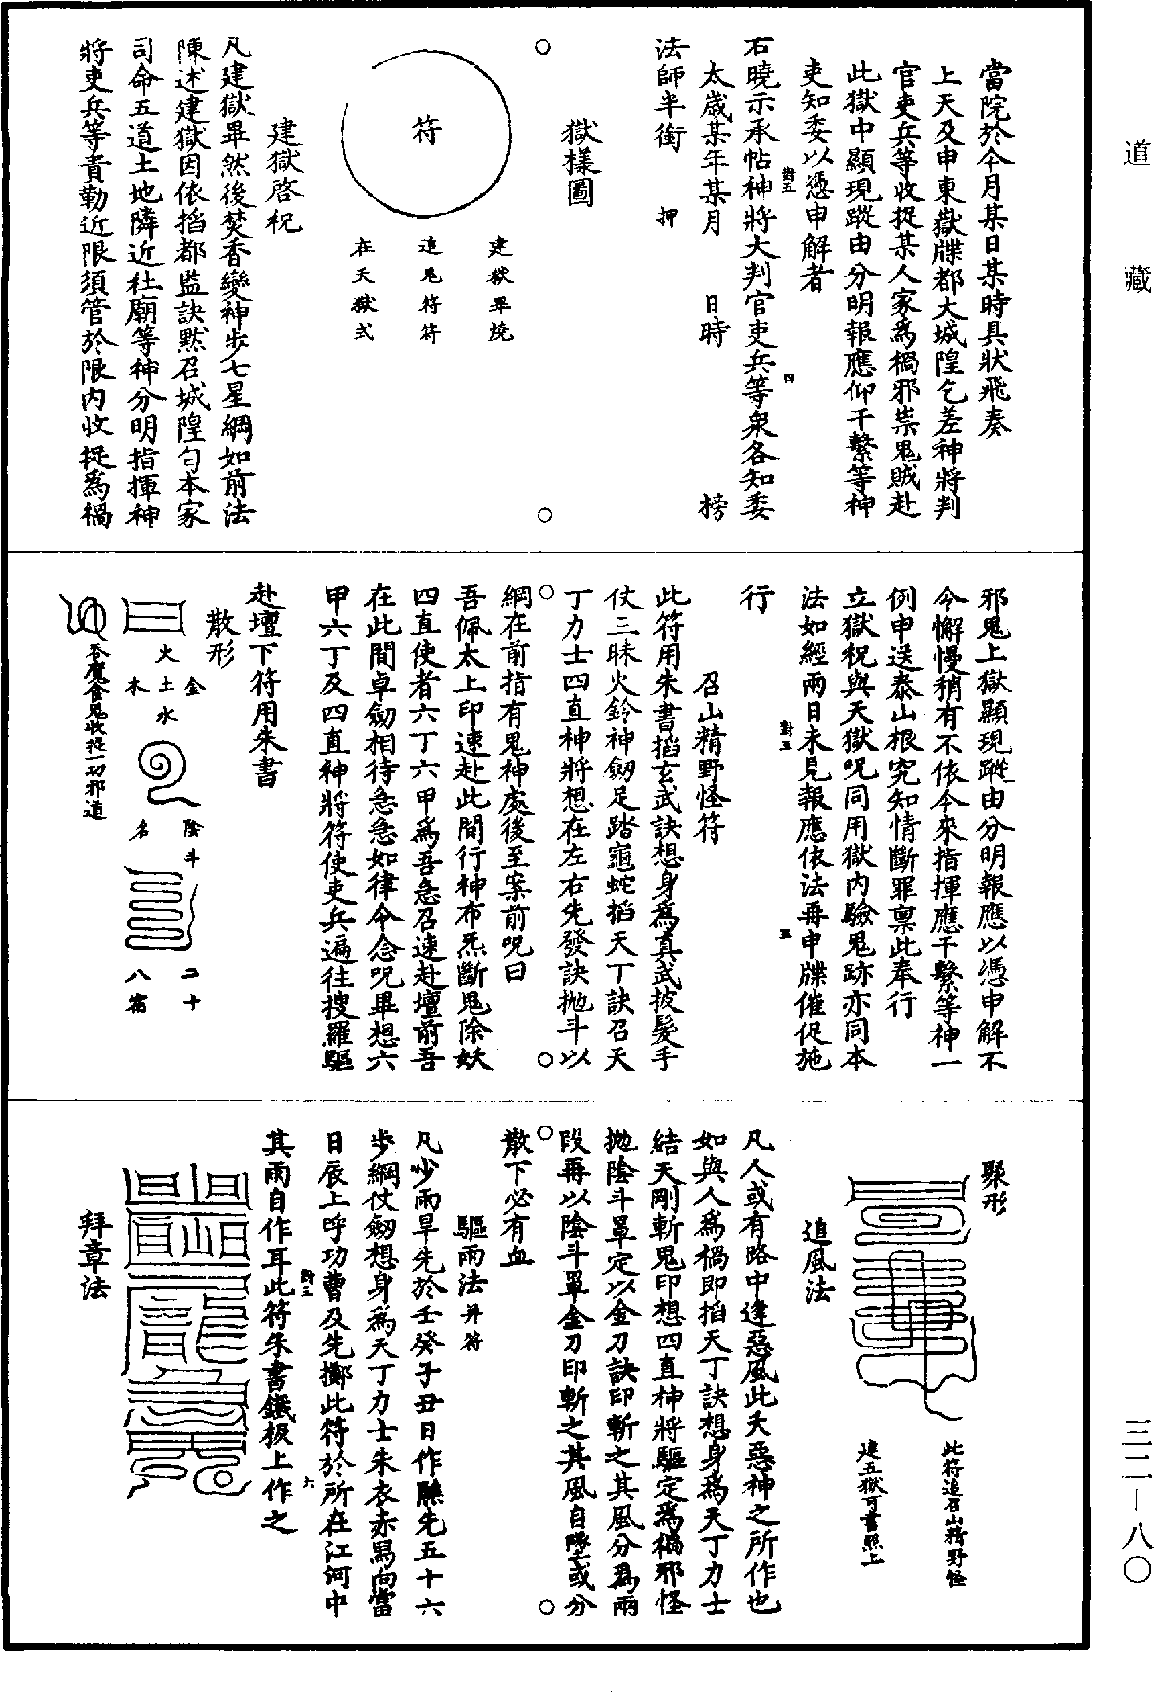 道藏
當院於今月某日某時具狀飛奏
上天及申東嶽牒都大城隍乞差神將判
官吏兵等收捉某人家為禍邪祟鬼賊赴
此獄中顯現蹤由分明報應仰干繫等神
吏知委以憑申解者
右曉示承帖神將大判官吏兵等衆各知委
太歲某年某月 日時 榜
法師半銜 押
獄樣圖
符
建獄畢燒
追鬼符符
在天獄式
建獄啓祝
凡建獄畢然後焚香變神步七星綱如前法
陳述建獄因依搯都監訣黙召城隍勾本家
司命五道土地隣近社廟等神分明指揮神
將吏兵等責勒近限須管於限内收捉為禍
邪鬼上獄顯現蹤由分明報應以憑申解不
令懈慢稍有不依今來指揮應干繫等神一
例申送泰山根究知情斷罪禀此奉行
立獄祝與天獄咒同用獄内驗鬼跡亦同本
法如經兩日未見報應依法再申牒催促施
行
召山精野怪符
此符用朱書搯玄武訣想身為真武披髮手
仗三昧火鈴神劒足踏龜蛇搯天丁訣召天
丁力士四直神將想在左右先發訣抛斗以
綱在前指有鬼神處後至案前咒曰
吾佩太上印速赴此間行神布炁斷鬼除妖
四直使者六丁六甲為吾急召速赴壇前吾
在此間卓劒相待急急如律令念咒畢想六
甲六丁及四直神將符使吏兵遍往搜羅驅
赴壇下符用朱書
散形
金
火土水
木
陰斗
名
二十
八宿
吞魔食鬼收捉一切邪道
聚形
此符追召山精野怪
建五獄可書黑上
追風法
凡人或有路中逢惡風此天惡神之所作也
如與人為禍即搯天丁訣想身為天丁力士
結天剛斬鬼印想四直神將驅定為禍邪怪
抛陰斗罩定以金刀訣印斬之其風分為兩
段再以陰斗罩金刀印斬之其風自隊或分
散下必有血
驅雨法并符
凡少雨旱先於壬癸子丑日作醮先五十六
步綱仗劒想身為天丁力士朱衣赤舄向當
日辰上呼功曹及先擲此符於所在江河中
其雨自作耳此符朱書鐵板上作之
拜章法
三二－八〇